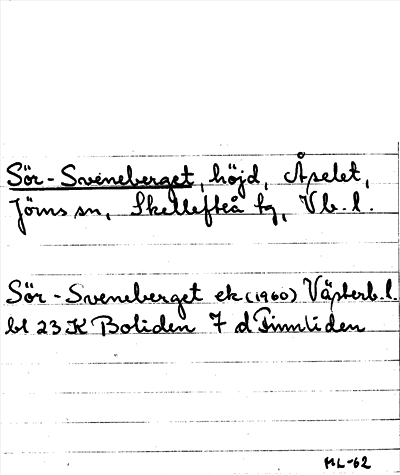 Sör-Sveneberget, höjd, Åselet,
Jörns sn, Skellefteå tg, Vb. l.
Sör-Sveneberget ek (1960) Västerb. l.
bl 23 K Boliden 7 d Finnliden
ML-62